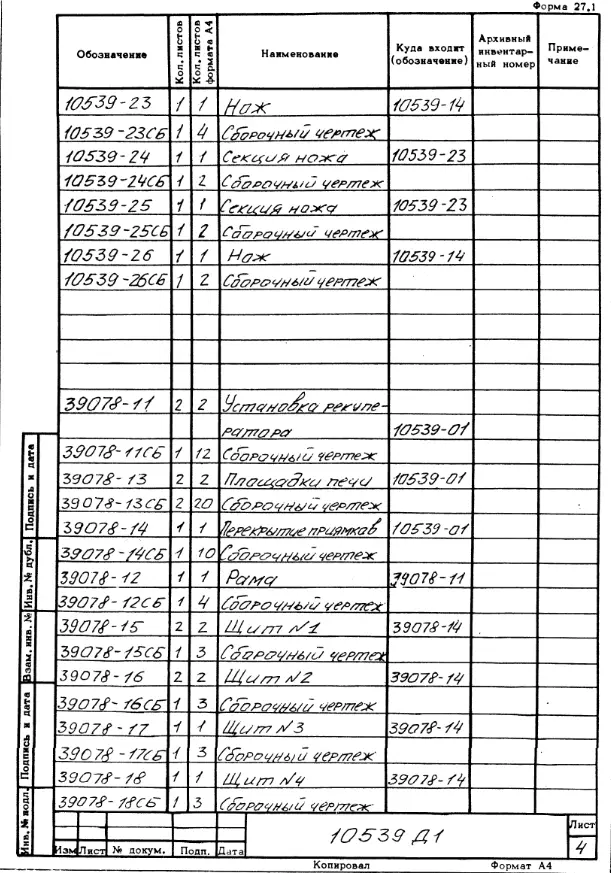 Форма 27.1
Обозначение Кол. листов Кол. листов формата А4 Наименование Куда входит (обозначение) Архивный инвентарный номер Примечание
10539-23 1 1 Нож 10539-14
10539-23СБ 1 4 Сборочный чертеж
10539-24 1 1 Секция ножа 10539-23
10539-24СБ 1 2 Сборочный чертеж
10539-25 1 1 Секция ножа 10539-23
10539-25СБ 1 2 Сборочный чертеж
10539-26 1 1 Нож 10539-14
10539-26СБ 1 2 Сборочный чертеж
39078-11 2 2 Установка рекупе-
ратора 10539-01
39078-11СБ 1 12 Сборочный чертеж
39078-13 2 2 Площадки печи 10539-01
39078-13СБ 2 20 Сборочный чертеж
39078-14 1 1 Перекрытие приямков 10539-01
39078-14СБ 1 10 Сборочный чертеж
39078-12 1 1 Рама 39078-11
39078-12СБ 1 4 Сборочный чертеж
39078-15 2 2 Щит №1 39078-14
39078-15СБ 1 3 Сборочный чертеж
39078-16 2 2 Щит №2 39078-14
39078-16СБ 1 3 Сборочный чертеж
39078-17 1 1 Щит №3 39078-14
39078-17СБ 1 3 Сборочный чертеж
39078-18 1 1 Щит №4 39078-14
39078-18СБ 1 3 Сборочный чертеж
Подпись и дата
Инв. № дубл.
Взам. инв. №
Подпись и дата
Инв. № подл.
10539 Д1
Лист
4
Изм Лист № докум. Подп. Дата
Копировал Формат А4